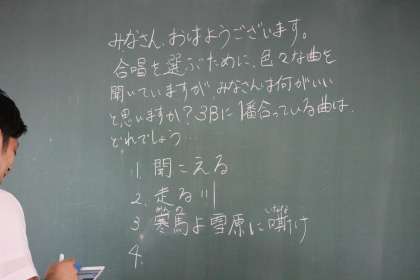 みなさん、おはようございます。
合唱を選ぶために、色々な曲を
聞いていますが、みなさんは何がいい
と思いますか？3Bに1番合っている曲は、
どれでしょう…
1. 聞こえる
2. 走る川
3. 寒馬よ雪原に嘶け
4.